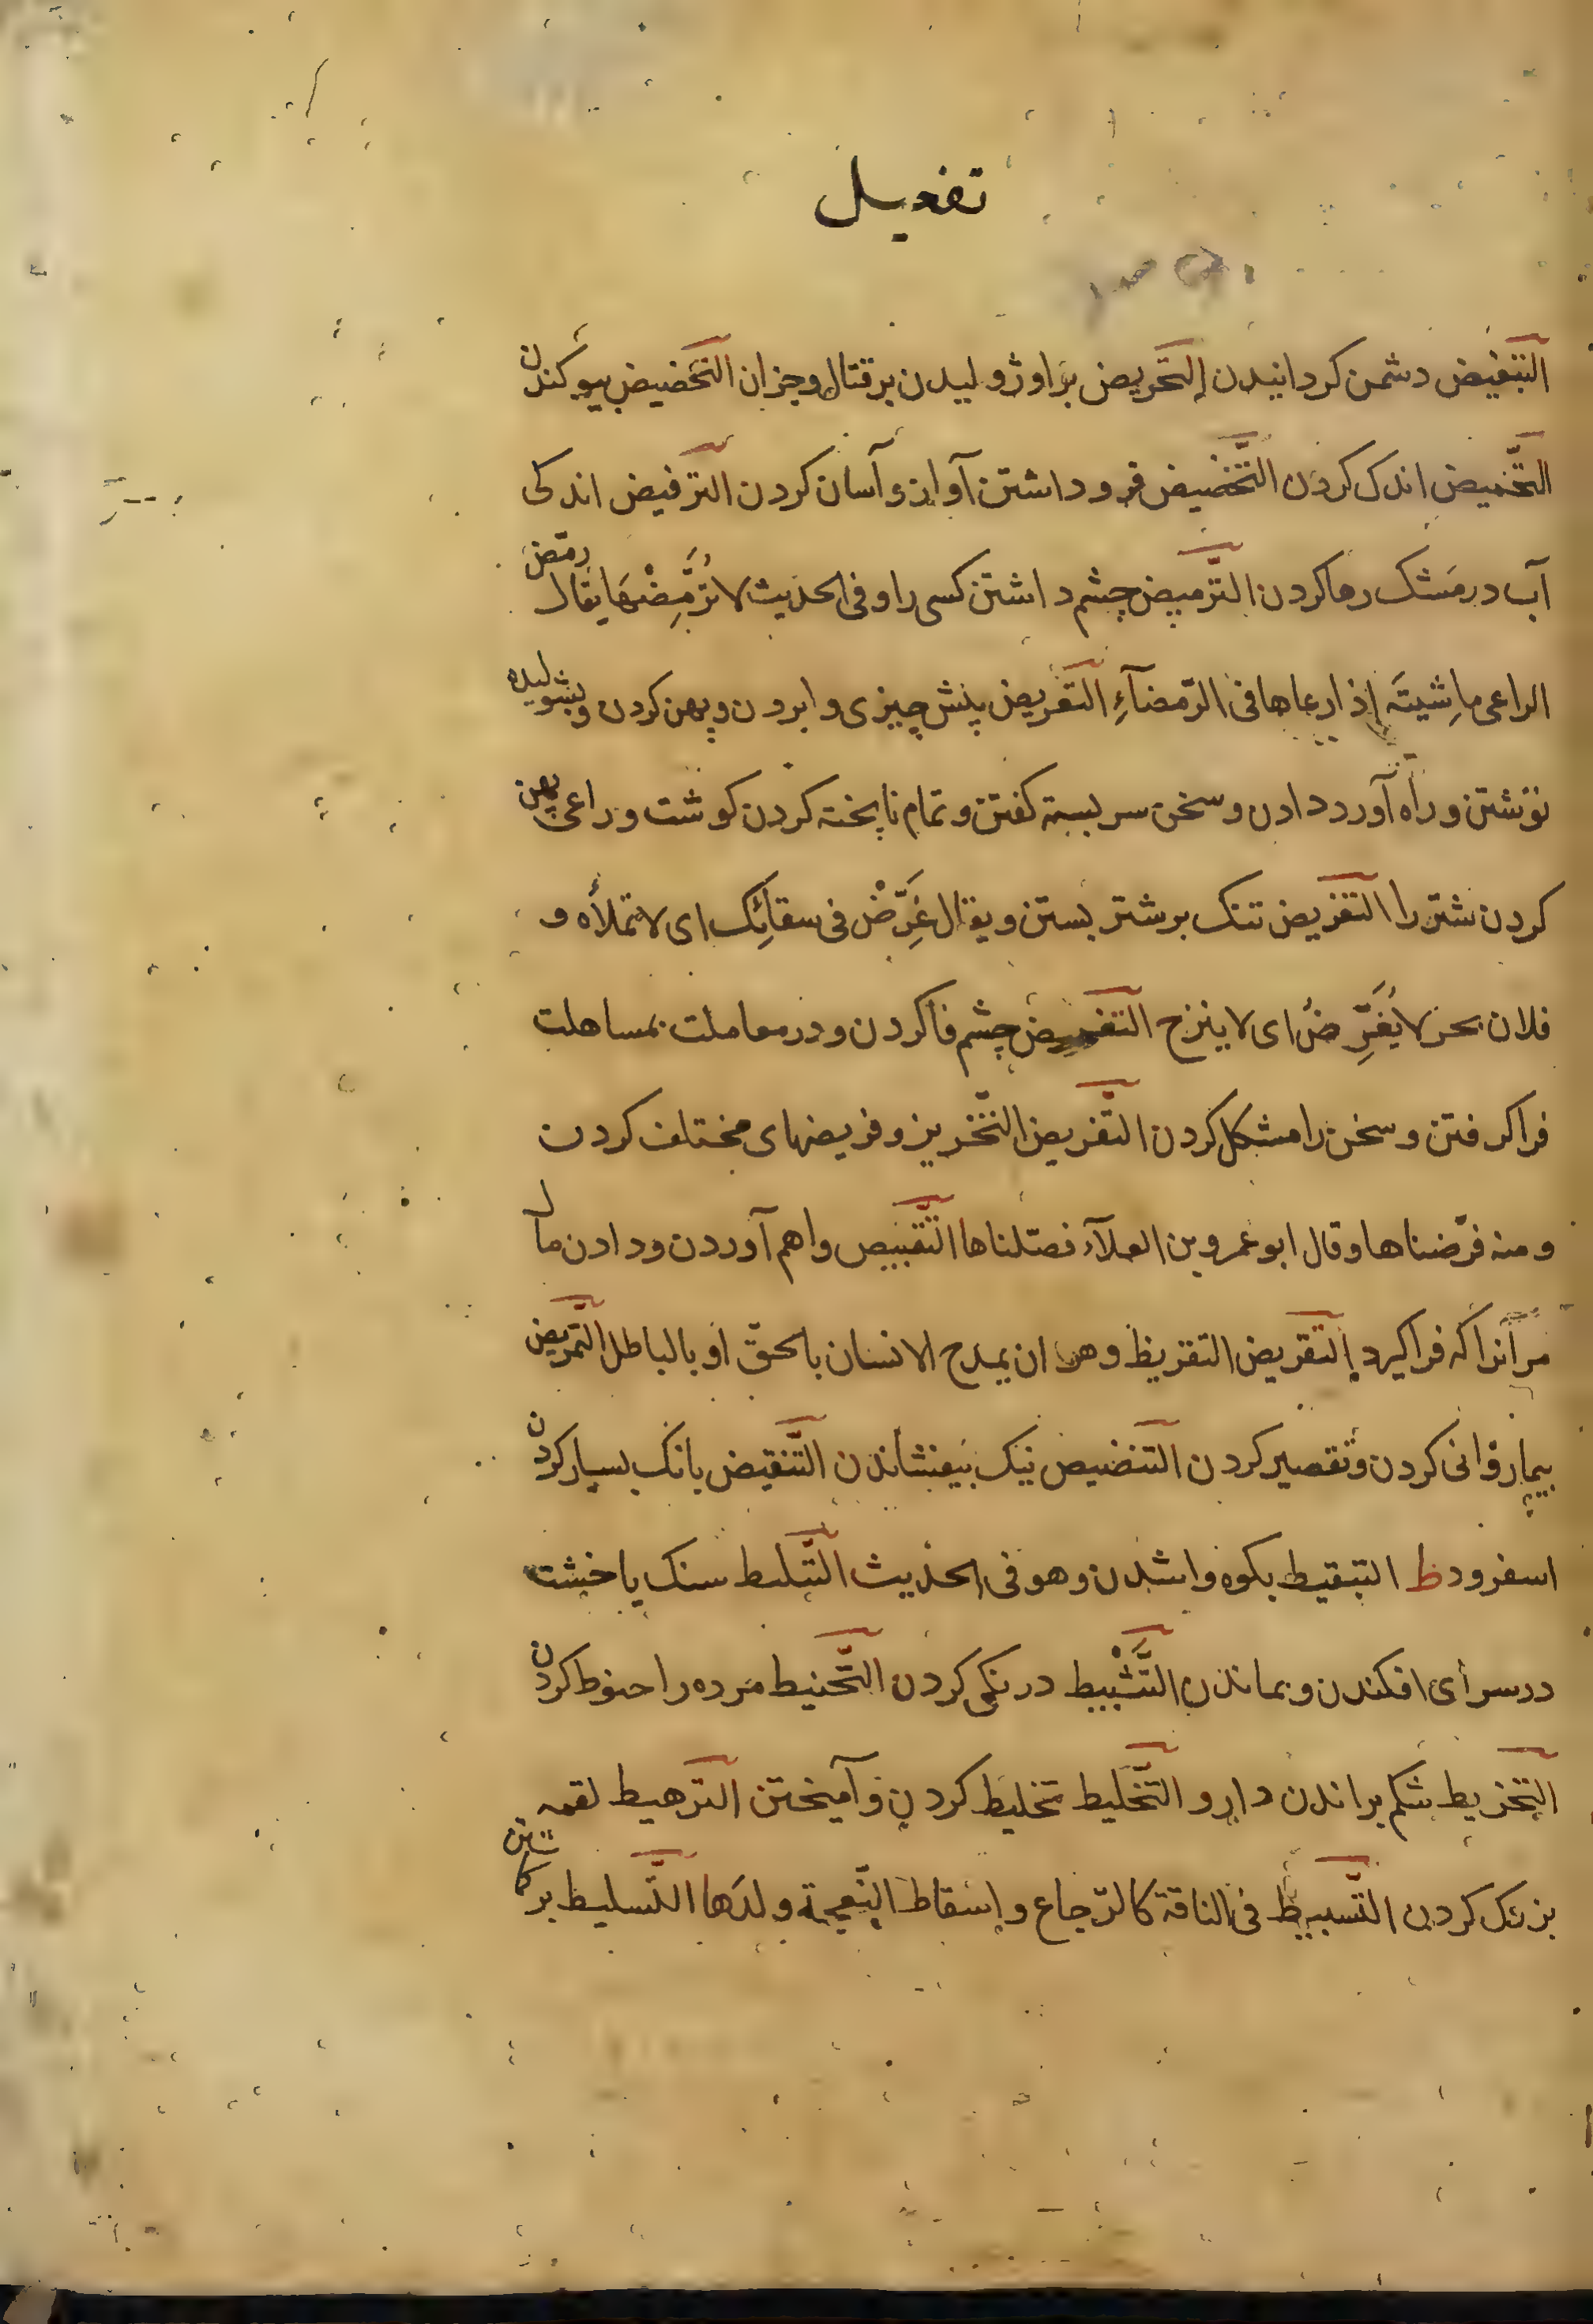 تفعیل
التبغیض دشمن کردانیدن التحریض براوژولیدن بر قتال و جز ان التحضیض بیوکندن
التخمیض اندک کردن التخفیض فرو داشتن آواز و آسان کردن الترفیض اندکی
آب در مشک رها کردن الترمیض چشم داشتن کسی را و فی الحدیث لا تُرَمِّضْهَا یقال رمّض
الراعی ماشیته اذا رعاها فی الرّمضآءِ التعریض پیش چیزی وا بردن و پهن کردن و بشولیده
نوشتن و راه آورد دادن و سخن سربسته کفتن و تمام ناپخته کردن کوشت و راعی پهن
کردن شتر را التغریض تنک بر شتر بستن و یقال غَرِّضْ فی سقائک ای لا تملأه و
فلان بحر لا یُغَرِّضُ ای لا ینزح التغمیض چشم فا کردن و در معاملت بمساهلت
فرا کرفتن و سخن را مشکل کردن التفریض التخریز و فریضهای مختلف کردن
و منه فرّضناها و قال ابو عمرو بن العلآء فصّلناها التقبیض واهم آوردن و دادن مال
مر آنرا که فرا کیرد التقریض التقریظ و هو ان یمدح الانسان بالحقّ او بالباطل التمریض
بیماروانی کردن و تقصیر کردن التنضیض نیک بیفشاندن التنقیض بانک بسیار کردن
اسفرود ط التبقیط بکوه وا شدن و هو فی الحدیث التبلیط سنک یا خشت
در سرای افکندن و بماندن التَّثْبیط درنکی کردن التّحنیط مرده را حنوط کردن
التخریط شکم براندن دارو التّخلیط تخلیط کردن و آمیختن الترهیط لقمه
بزرک کردن التّسبیط فی الناقة کالرّجاع و اسقاط النّعجة ولدَها التّسلیط بر کاشتن